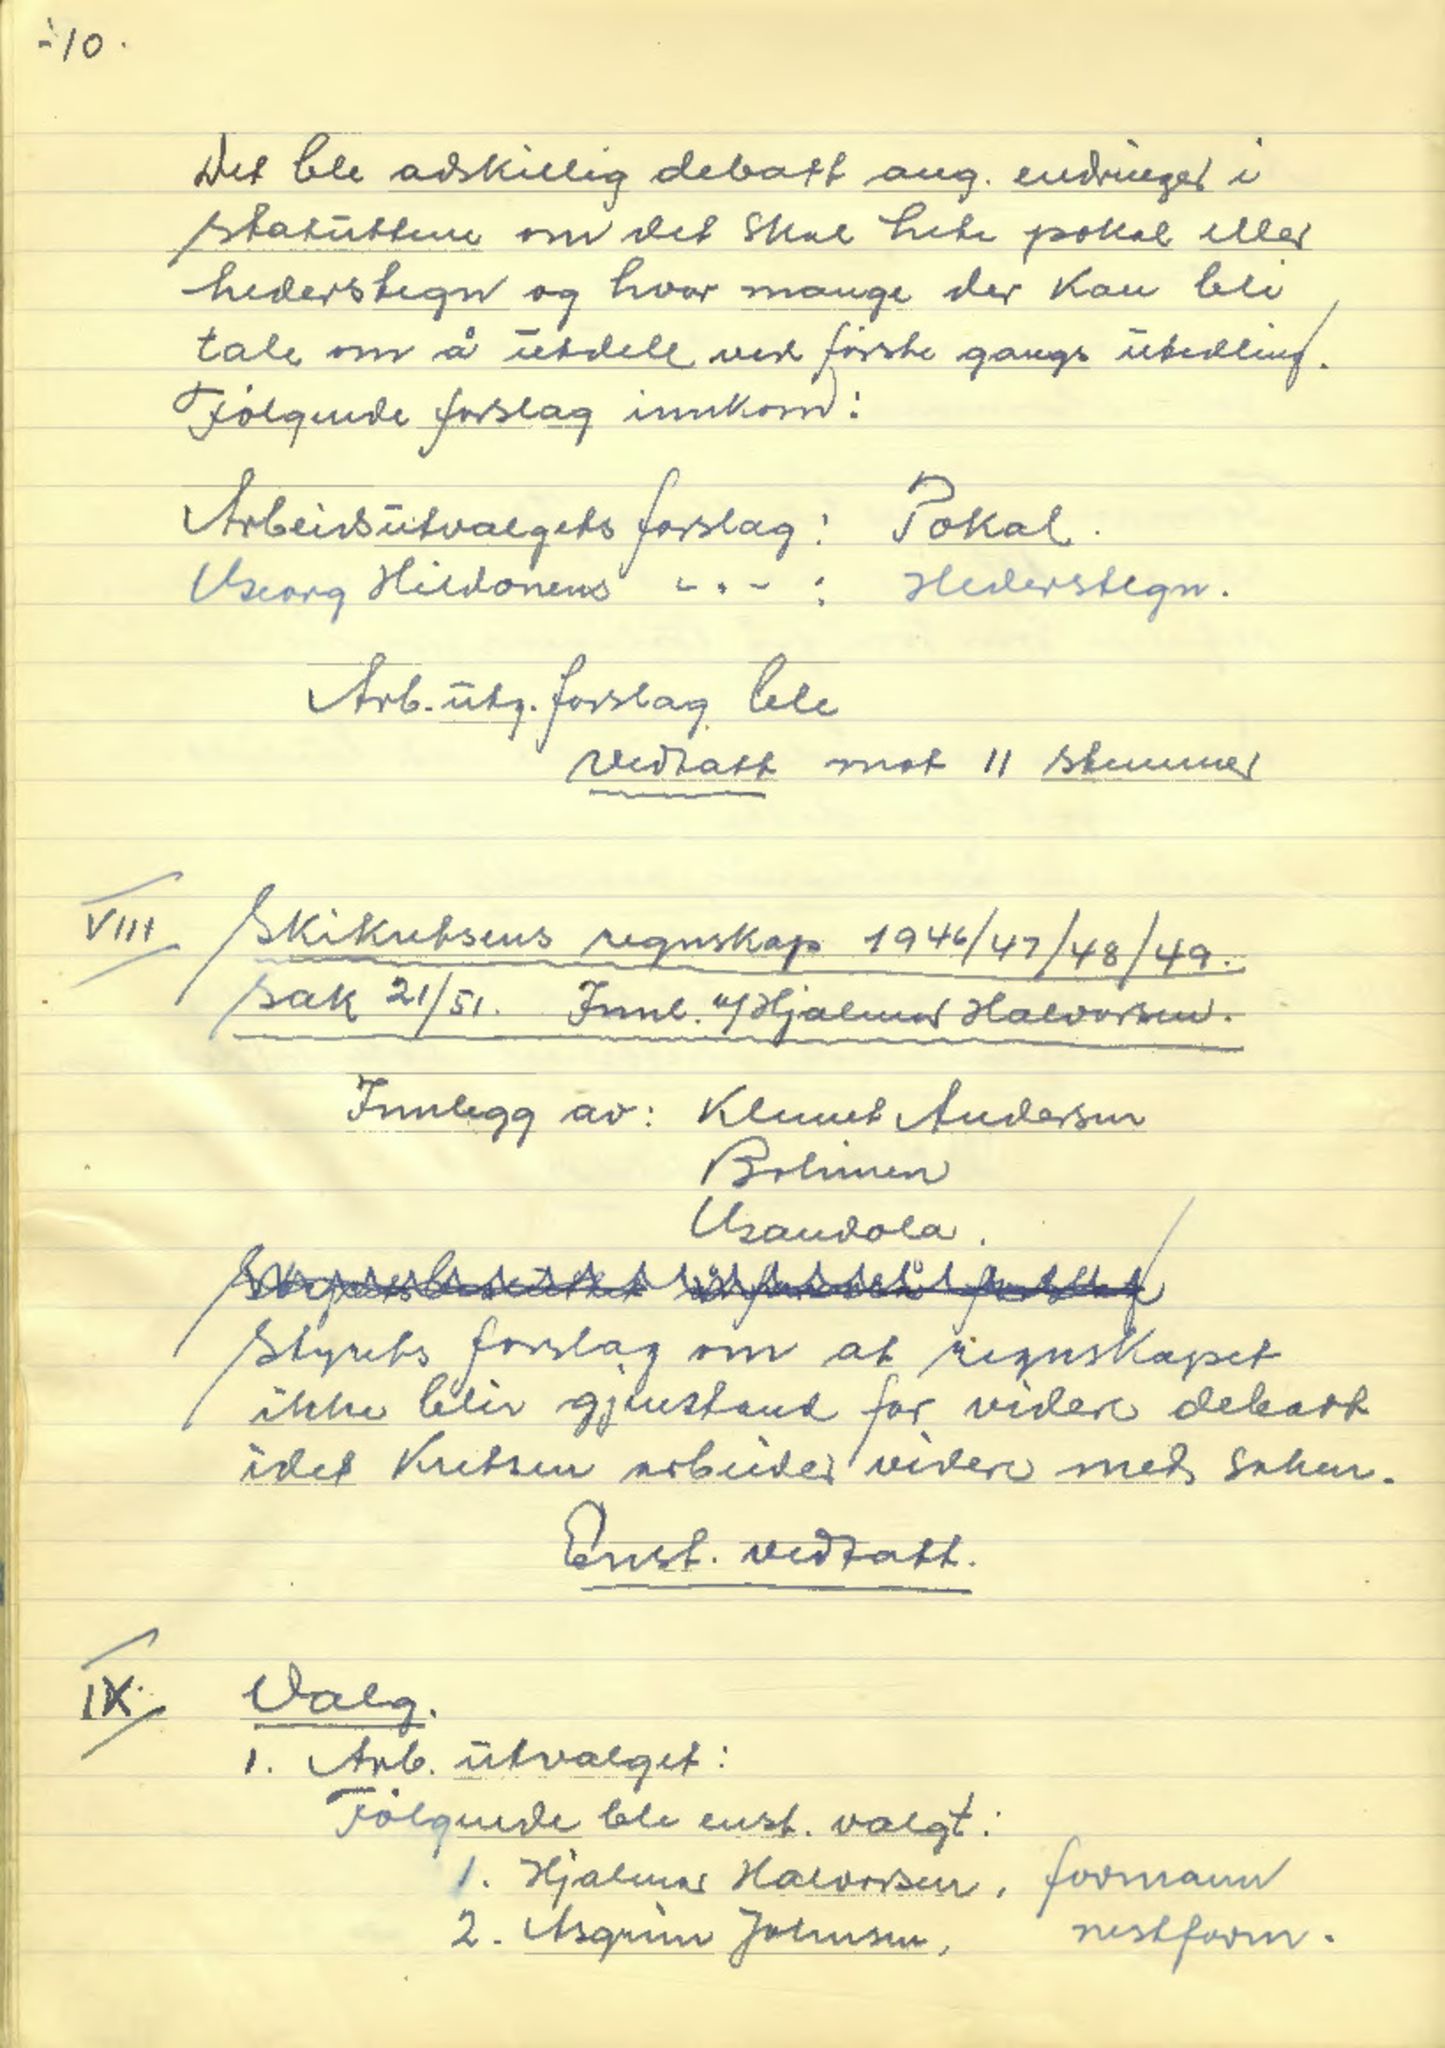 -10.
Det ble adskillig debatt ang. endringer i
statuttene om det skal hete pokal eller
hederstegn og hvor mange der kan bli
tale om å utdele ved første gangs utedling.
Følgende forslag innkom:
Arbeidsutvalgets forslag: Pokal.
Georg Hildonens -"- : Hederstegn.
Arb. utg. forslag ble
vedtatt mot 11 stemmer
VIII Skikretsens regnskap 1946/47/48/49.
Sak 21/51. Innl. v/Hjalmar Halvorsen.
Innlegg av: Klemet Andersen
Bolinen
Gandola.
Styrets forslag om at regnskapet
ikke blir gjenstand for videre debatt
idet Kretsen arbeider videre med saken.
Enst. vedtatt.
IX. Valg.
1. Arb. utvalget:
Følgende ble enst. valgt:
1. Hjalmar Halvorsen, formann
2. Asgrim Johnsen, nestform.